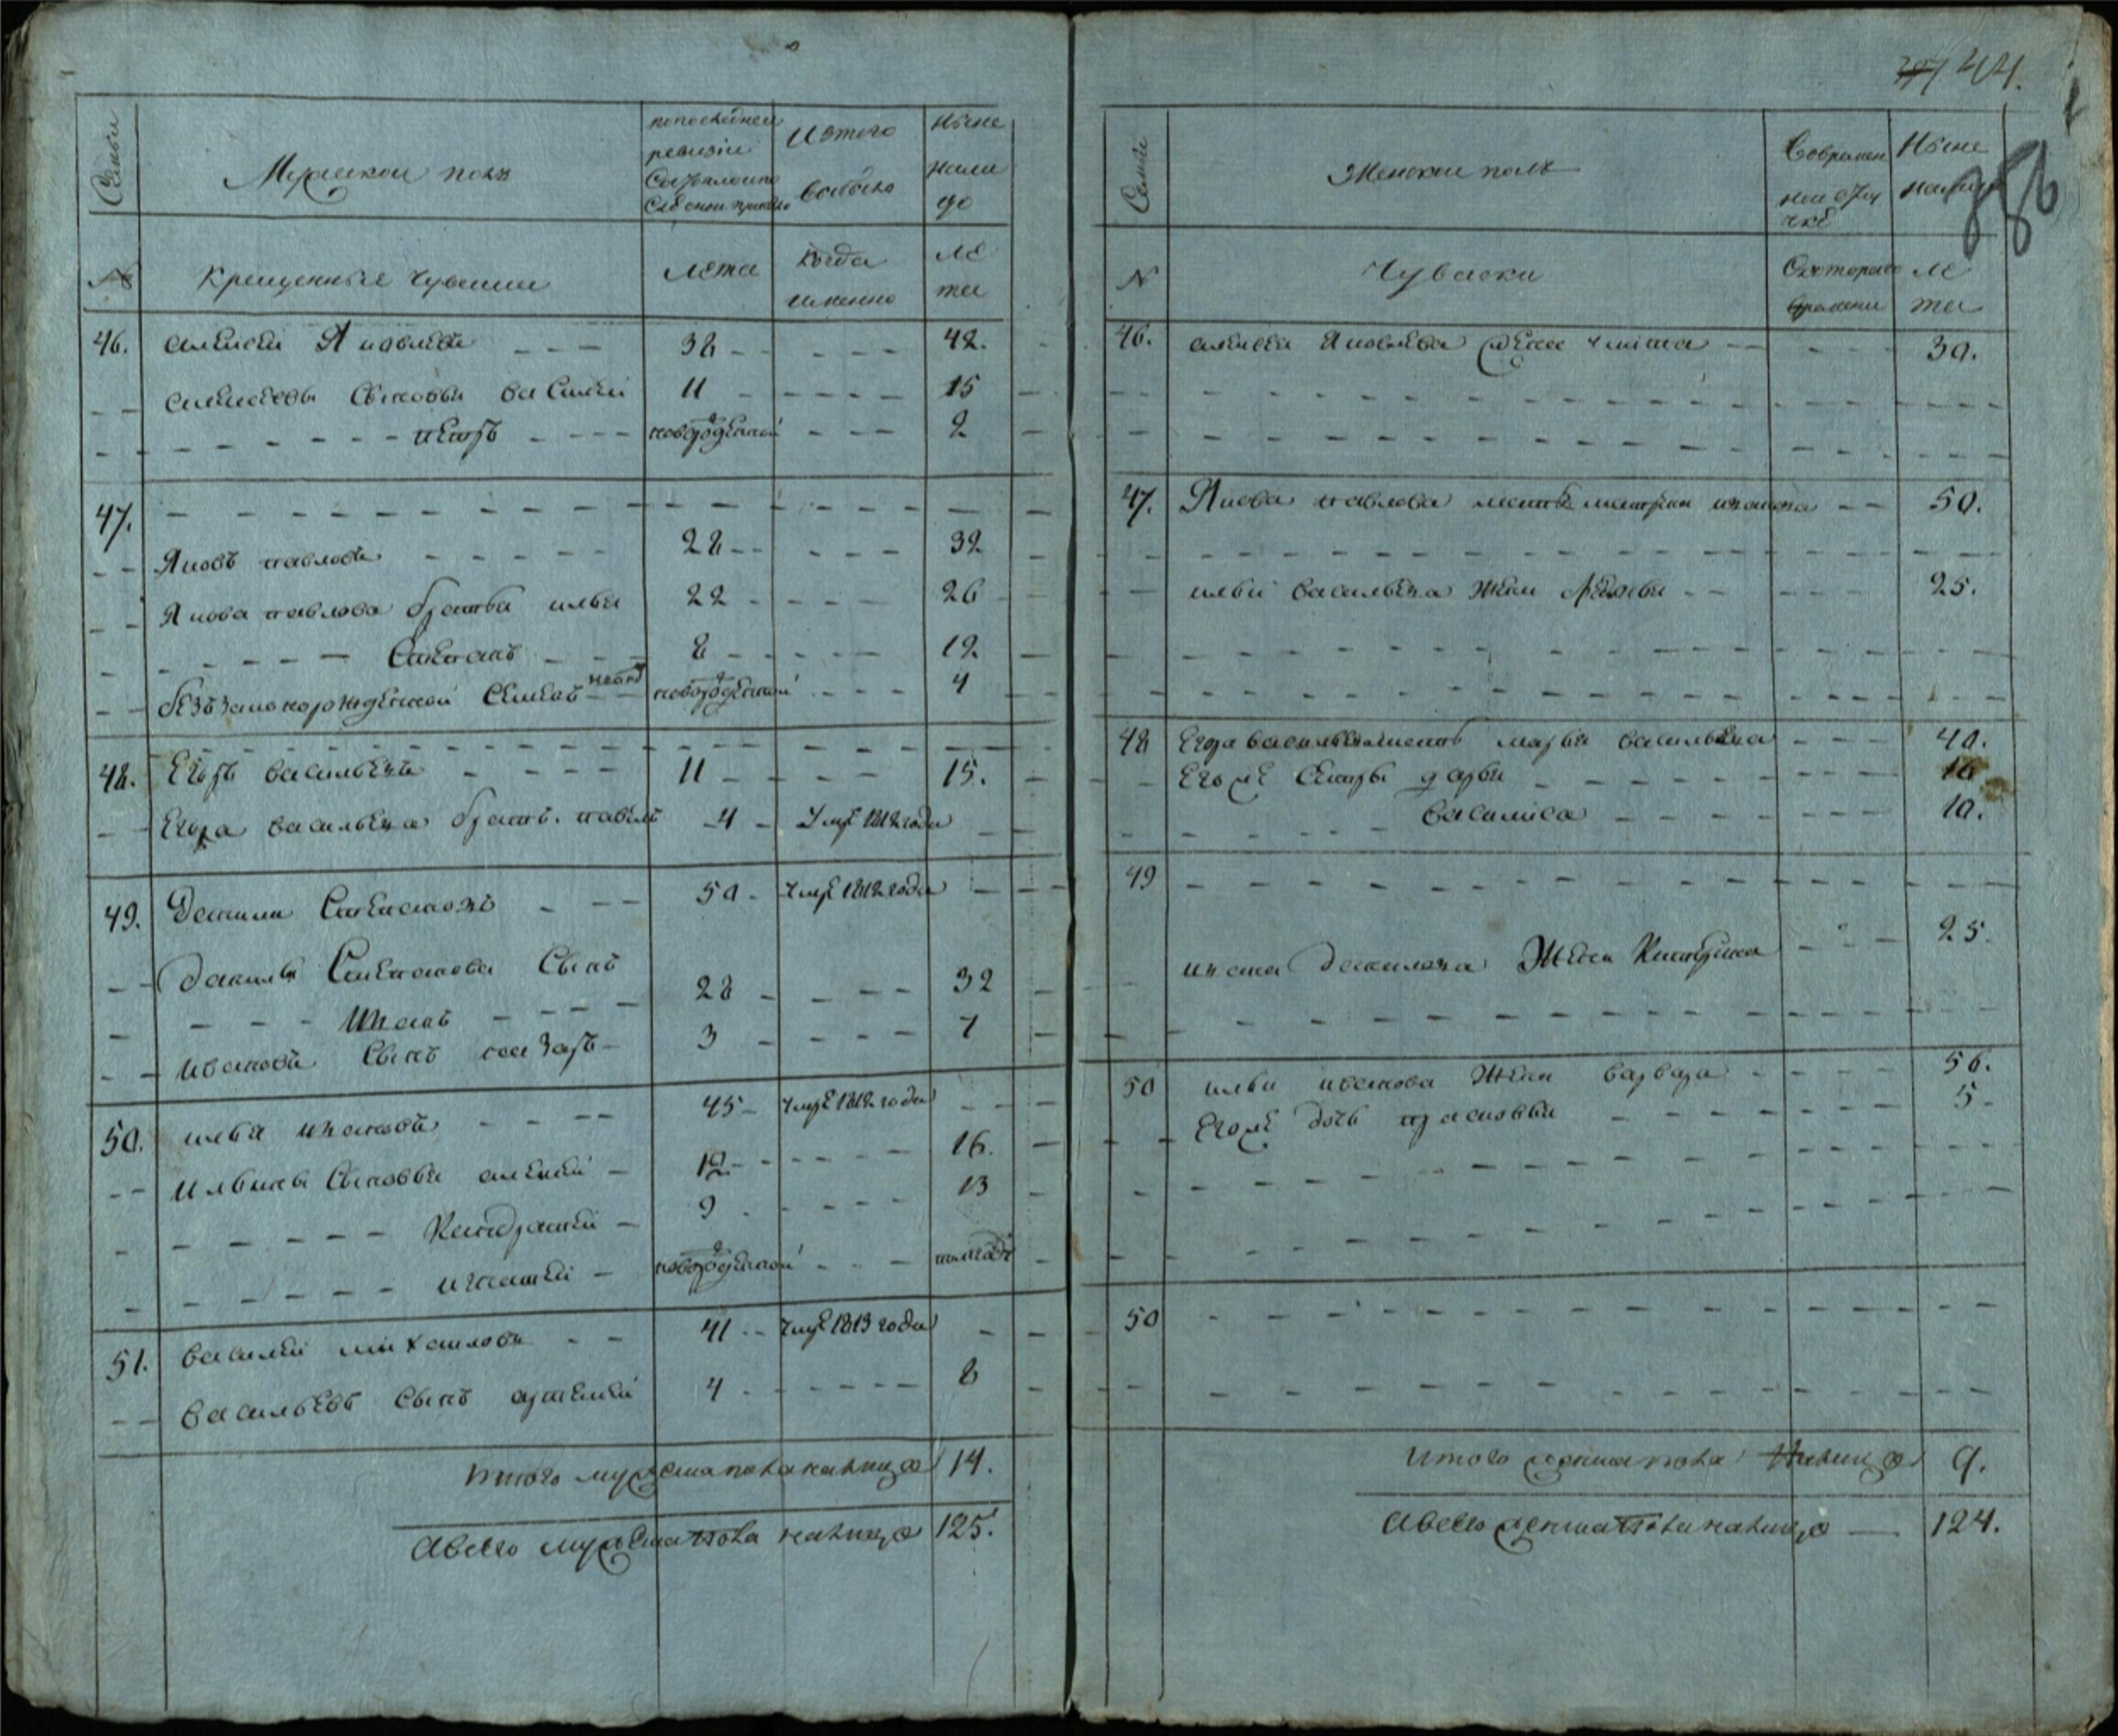 44.
386
Семьи
Мужеской полъ
попоследней
ревизіи
Состояло и по
Изтого
выбыло
Ныне
нали
цо
№
крещенные чуваши
Лета
когда
именно
ле
та
46. алексей Яковлевъ 38 42.
алексеевы Сыновья василей 11 15
петръ новорожденной 2
47.
Яковъ павловъ 28 32
Якова павлова братья илья 22 26
Степанъ 8 12
безъзаконорожденной Семенъ новорожденной 4
48. Егоръ васильевъ 11 15.
Егора васильева братъ павелъ 4 Умре 1812 года
49. Данила Степановъ 50 Умре 1812 года
Данилы Степанова Сынъ
Иванъ 28 32
ивановъ Сынъ назаръ 3 7
50. илья ивановъ 45 Умре 1812 года
Ильины Сыновья алексей 12 16.
Кандратей 9 13
игнатей новорожденной полгода
51. василей михайловъ 41 Умре 1813 года
васильевъ Сынъ артемей 4 8
Итого мужеска пола налицо 14.
Авсего мужеска пола налицо 125.
Семьи
Женской полъ
Современ
ной отлу
чке
Ныне
налицо
N
Чуваски
Скоторого
времени
ле
та
46. алексея Яковлева жена 30.
47. Якова павлова мать 50.
ильи васильева жена 25.
48 Егора васильева мать марья васильева 40.
Егоже Сестры дарья 16
василиса 10.
49
ивана данилова Жена 25.
50 ильи иванова Жена варвара 56.
Егоже дочь прасковья 5
50
Итого женска пола налицо 9.
Авсего женска пола налицо 124.